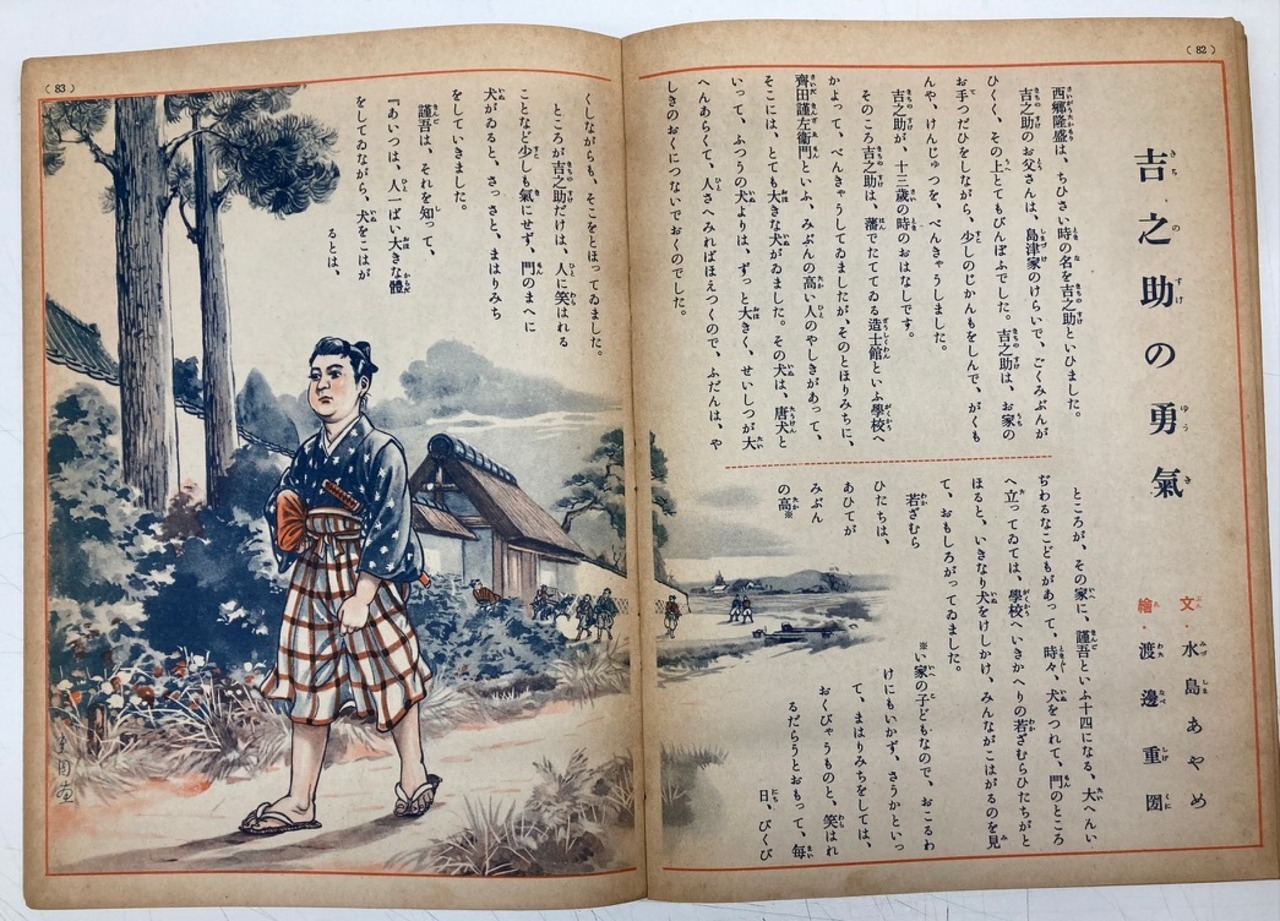 (82)
吉之助の勇氣
文・水島あやめ
繪・渡邊重圀
西郷隆盛は、ちひさい時の名を吉之助といひました。
吉之助のお父さんは、島津家のけらいで、ごくみぶんが
ひくく、その上とてもびんぼふでした。吉之助は、お家の
お手つだひをしながら、少しのじかんもをしんで、がくも
んや、けんじゅつを、べんきゃうしました。
吉之助が、十三歳の時のおはなしです。
そのころ吉之助は、藩でたててゐる造士館といふ學校へ
かよって、べんきゃうしてゐましたが、そのとほりみちに、
齊田謹左衞門といふ、みぶんの高い人のやしきがあって、
そこには、とても大きな犬がゐました。その犬は、唐犬と
いって、ふつうの犬よりは、ずっと大きく、せいしつが大
へんあらくて、人さへみればほえつくので、ふだんは、や
しきのおくにつないでおくのでした。
ところが、その家に、謹吾といふ十四になる、大へんい
ぢわるなこどもがあって、時々、犬をつれて、門のところ
へ立ってゐては、學校へいきかへりの若ざむらひたちがと
ほると、いきなり犬をけしかけ、みんながこはがるのを見
て、おもしろがってゐました。
若ざむら
ひたちは、
あひてが
みぶん
の高※
※い家の子どもなので、おこるわ
けにもいかず、さうかといっ
て、まはりみちをしては、
おくびゃうものと、笑はれ
るだらうとおもって、毎
日、びくび
(83)
くしながらも、そこをとほってゐました。
ところが吉之助だけは、人に笑はれる
ことなど少しも氣にせず、門のまへに
犬がゐると、さっさと、まはりみち
をしていきました。
謹吾は、それを知って、
『あいつは、人一ばい大きな體
をしてゐながら、犬をこはが
るとは、